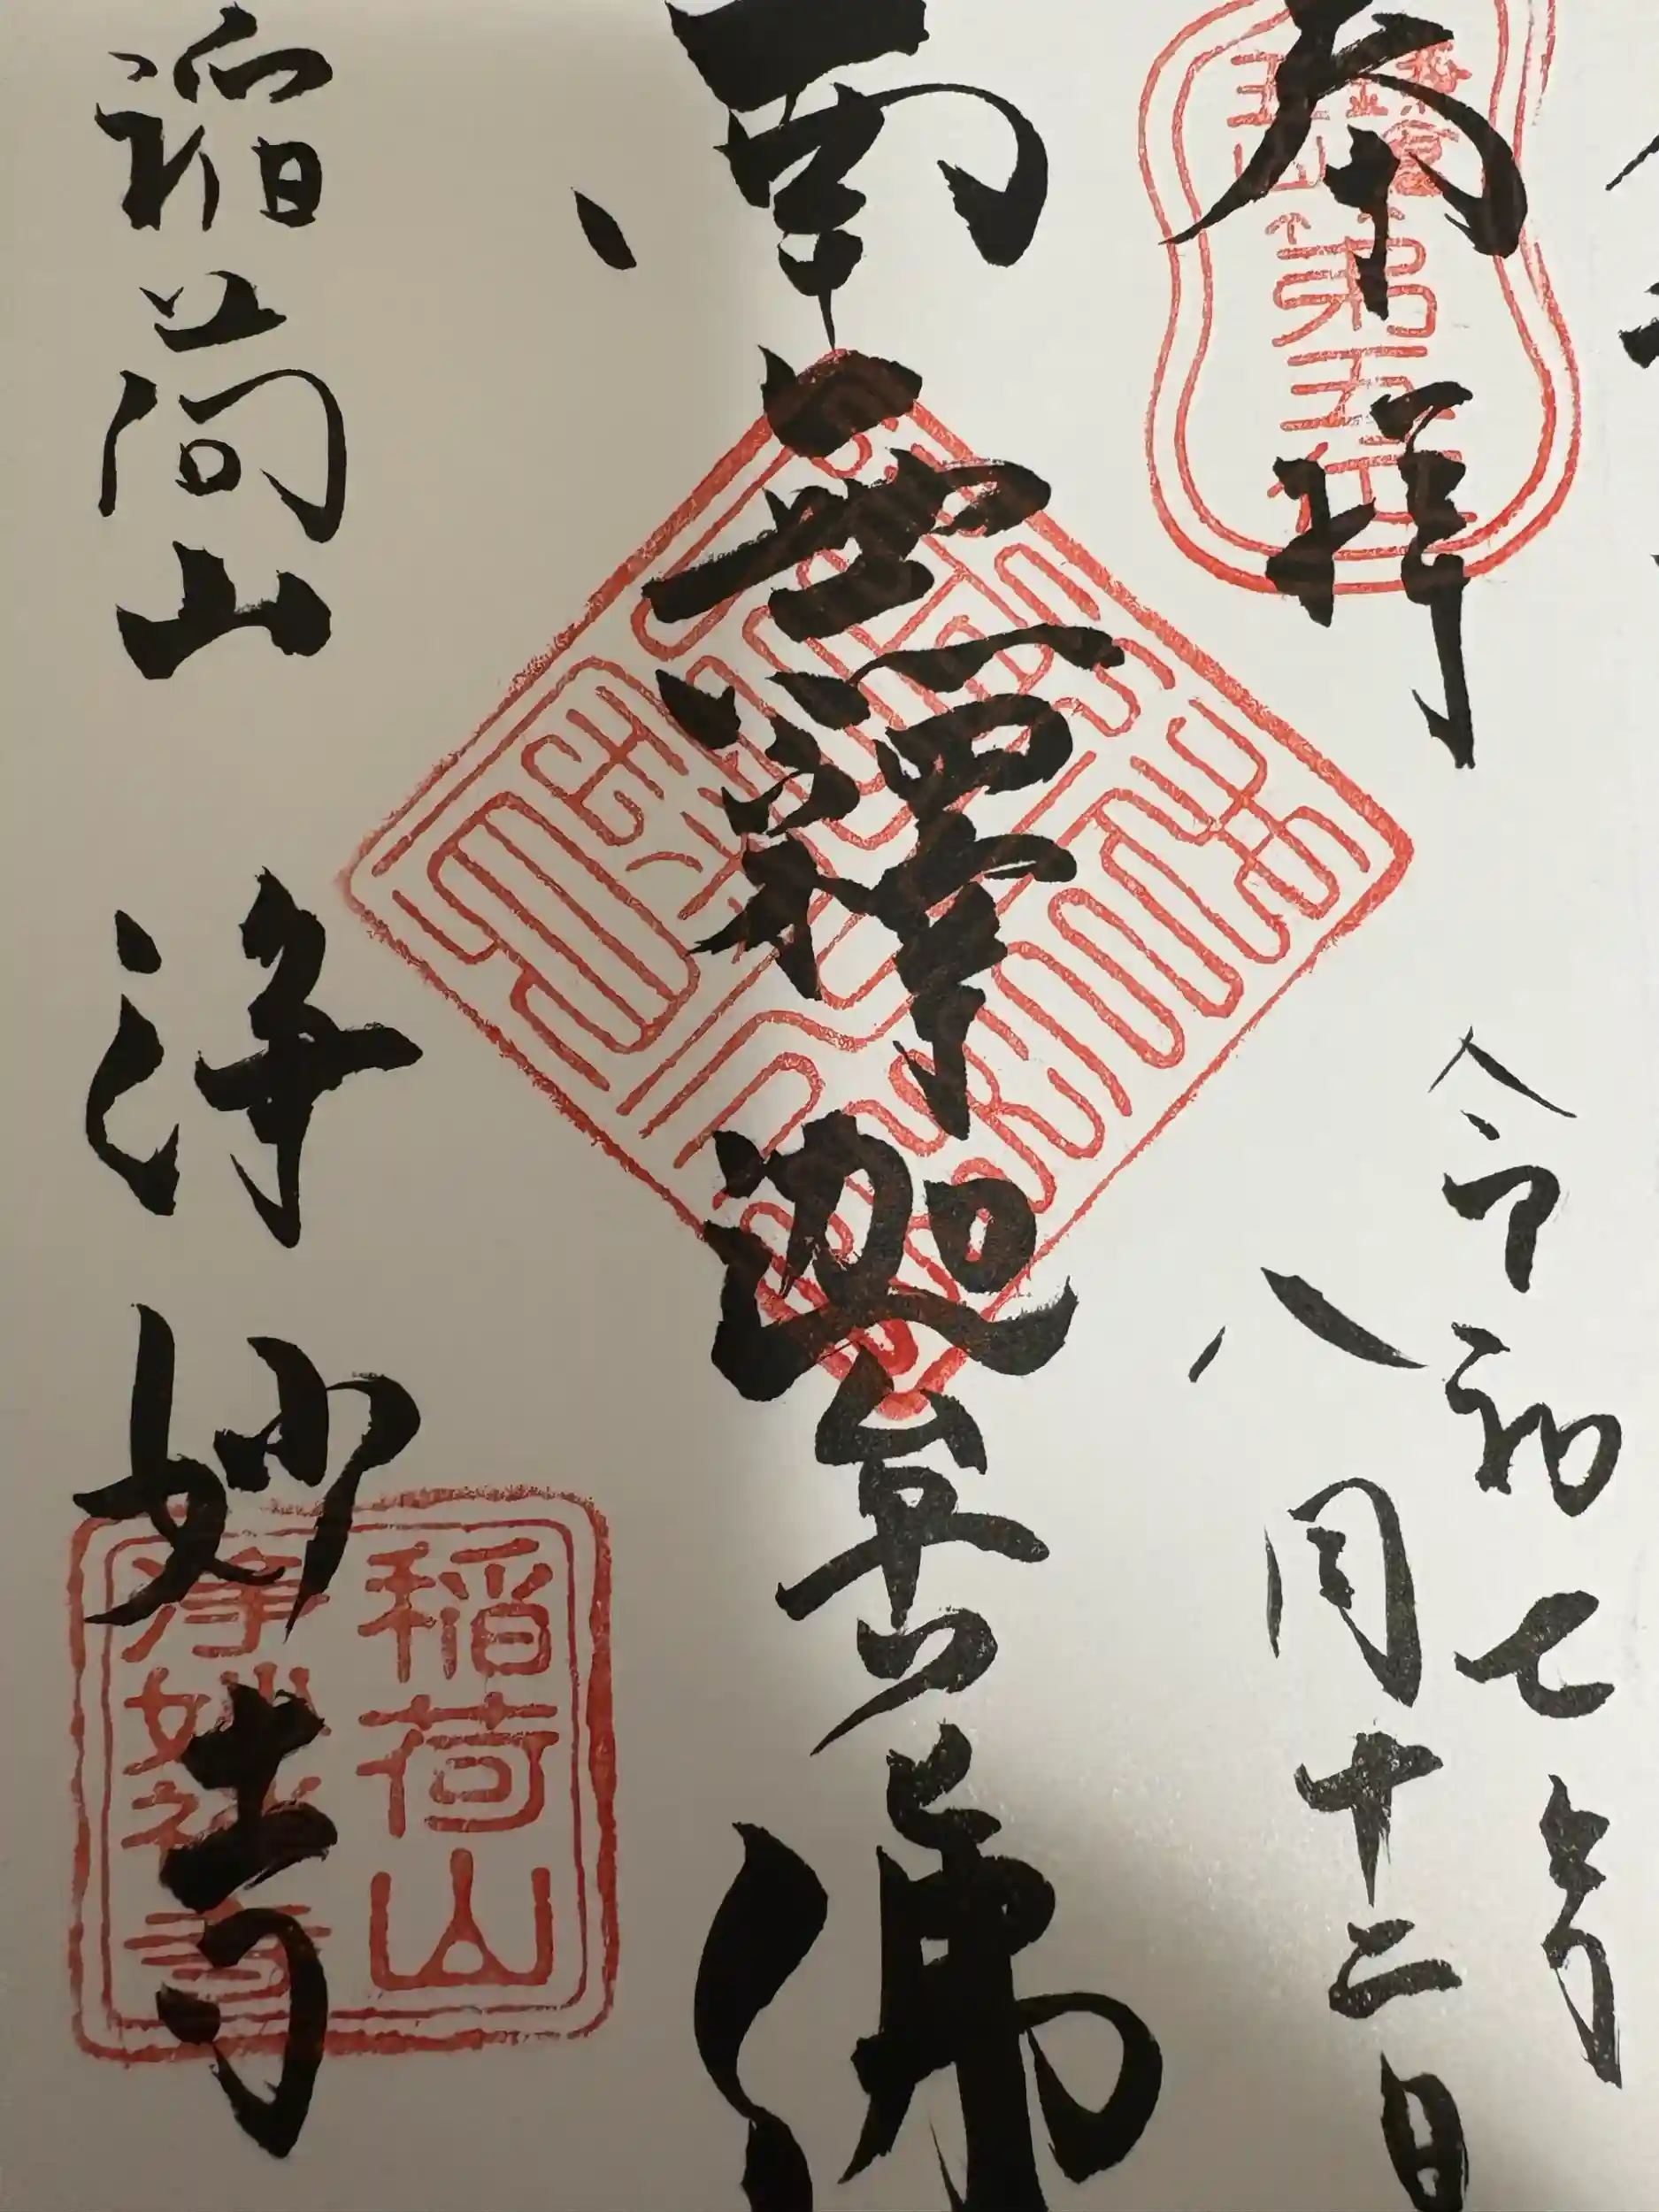 奉拝
令和七年
八月十二日
南無釋迦牟尼佛
稲荷山 浄妙寺
第五
稲荷山
浄妙禅寺